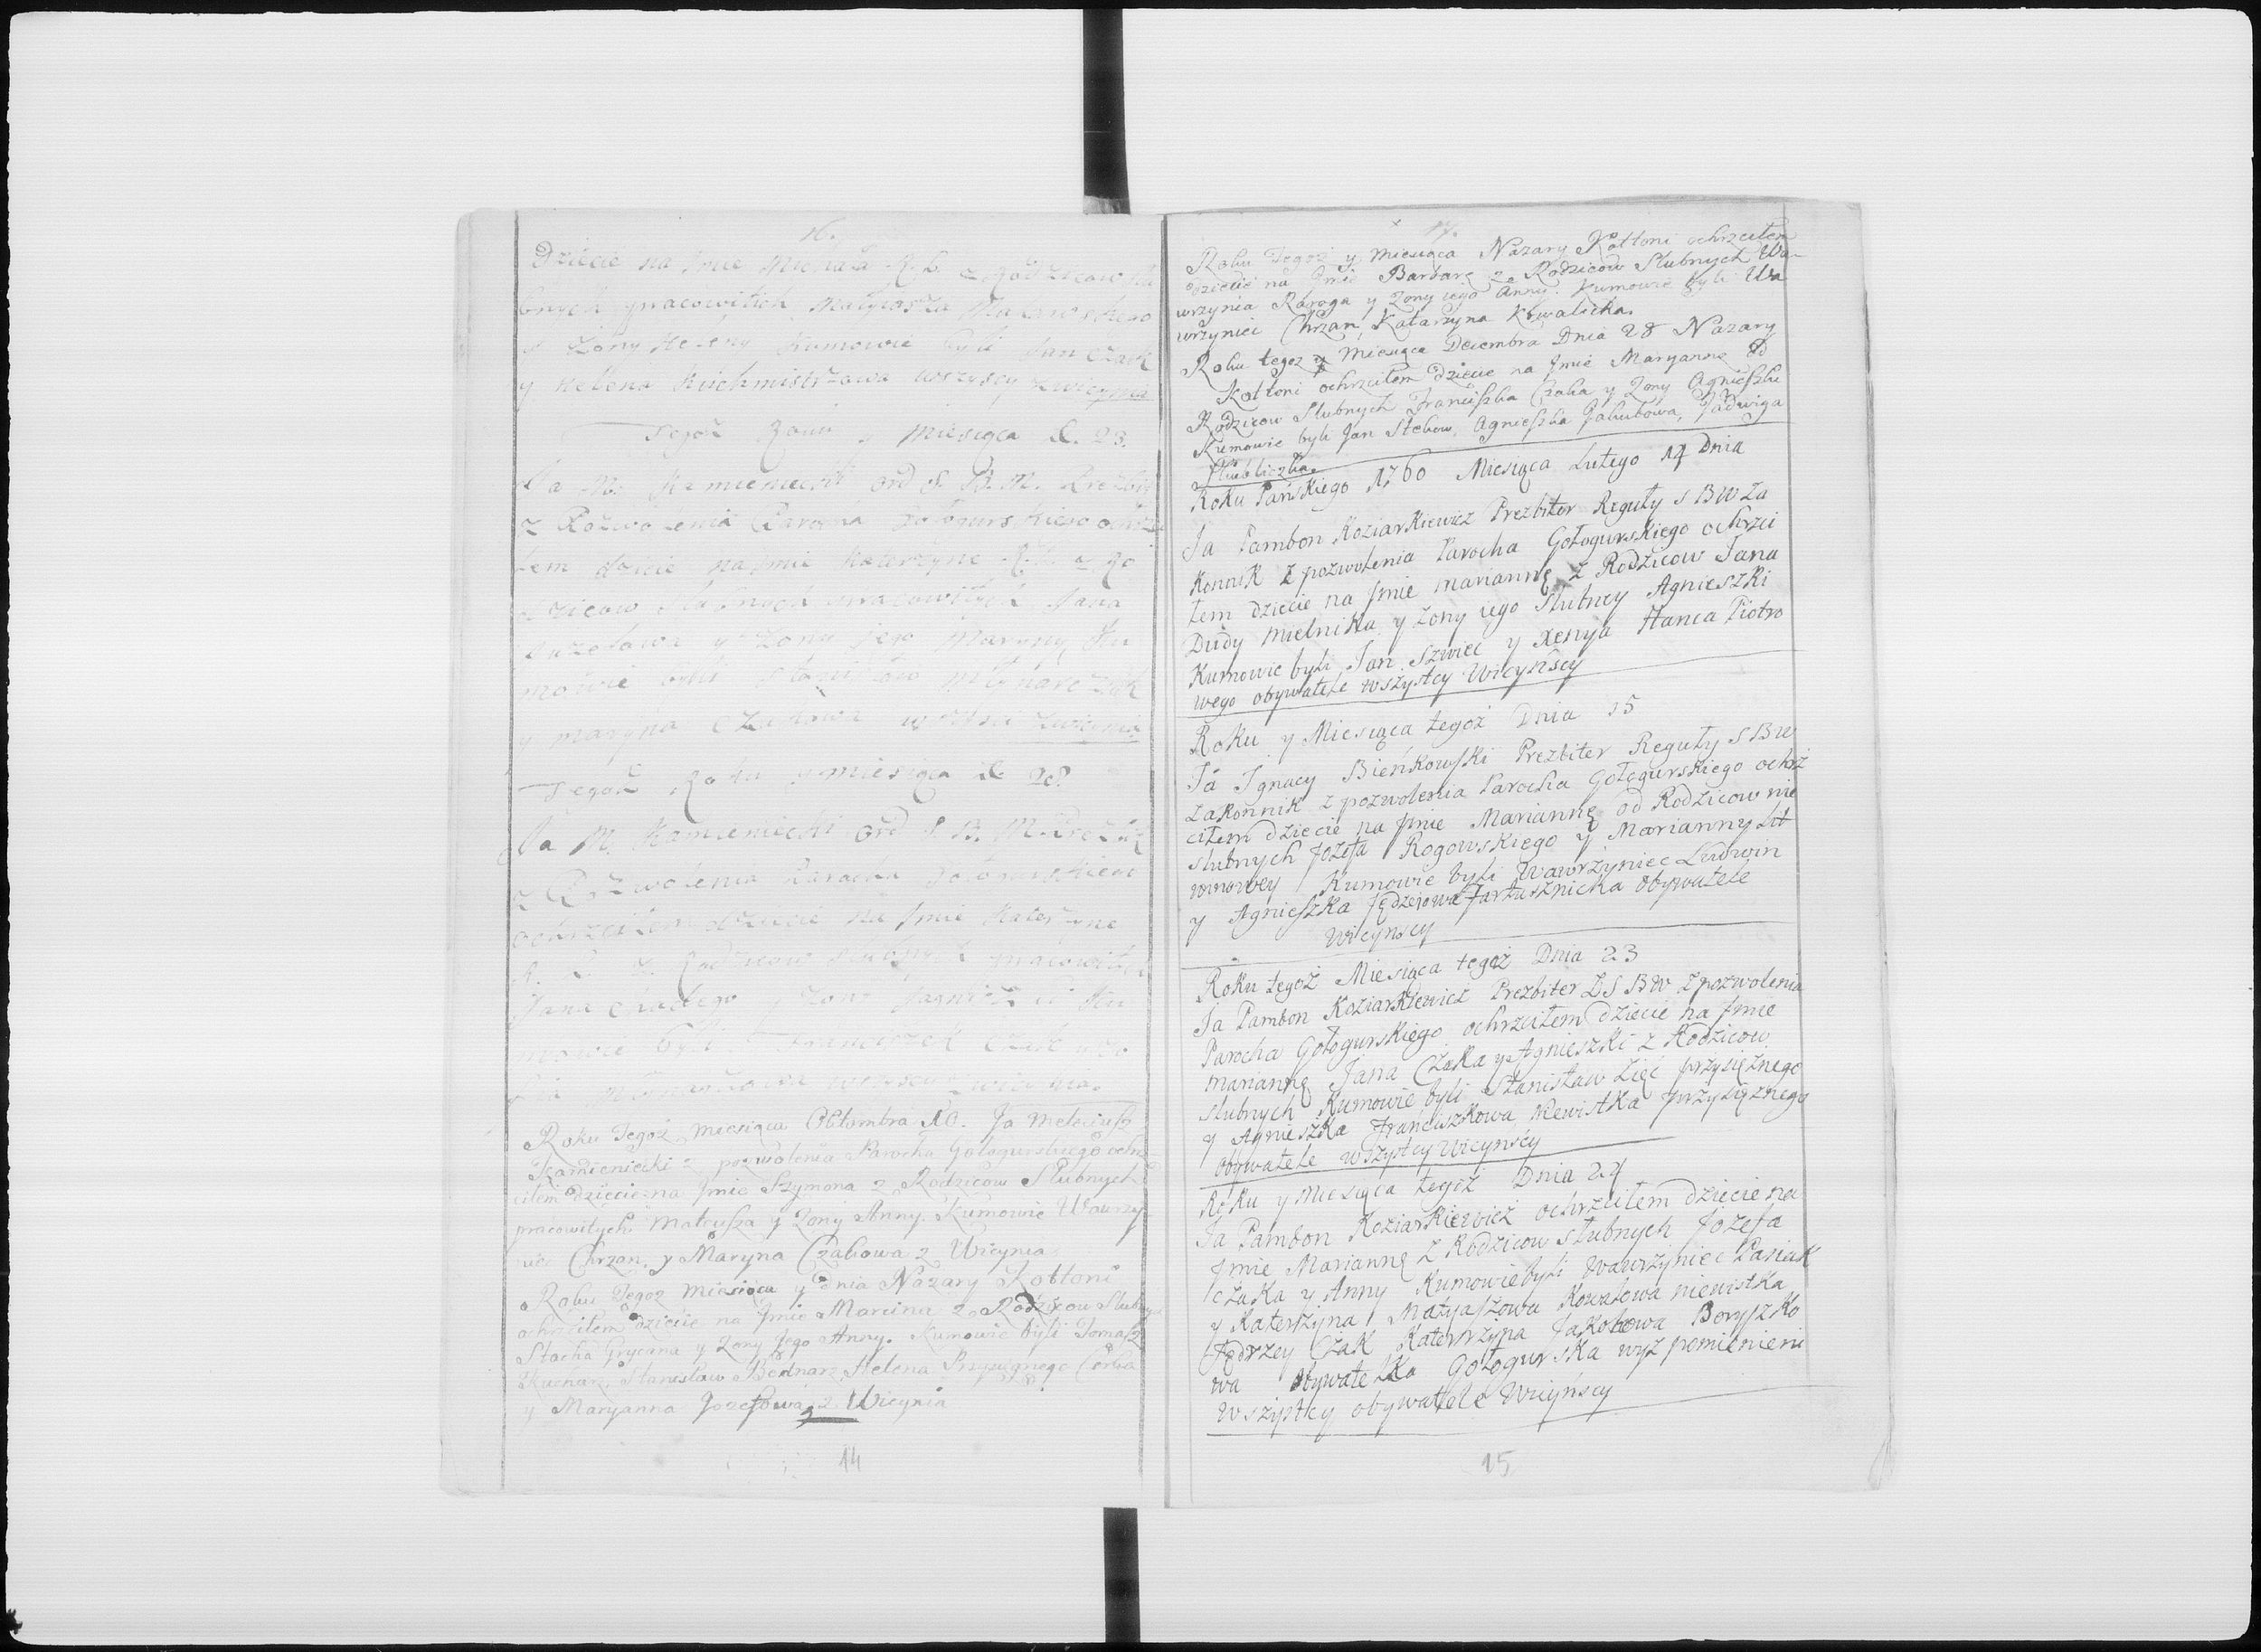 16.
Dziecie na Imie Michała R. L. z Rodzicow slu
bnych pracowitich
y Zony Heleny Kumowie byli Jan Czack
y Helena Kuchmistrzowa wszyscy zwicynia
Tegoż Roku y Miesiąca D. 23.
Ja M. Kamieniecki Ord S. B. M. Prezbit
z Pozwolenia Parocha Gołogurskiego ochrzci
łem dziecie na Imie Katerzyne R. L. z Ro
dzicow slubnych pracowitych Jana
y Zony jego Maryny Ku
mowie byli Stanisław Młynarczuk
y Maryna Czakowa wszysci zwicynia
Tegoż Roku y miesiąca D. 28.
Ja M. Kamieniecki Ord S. B. M. Prezbit
z Pozwolenia Parocha Gołogurskiego
ochrzciłem dziecie na Imie Katerzyne
R. L. z Rodzicow slubnych pracowitych
Jana y Zony Ku
mowie byli Franciszek Czak
wszyscy zwicynia.
Roku Tegoż Miesiąca Oktombra 10. Ja Meleciusz
Kamieniecki z pozwolenia Parocha Gołogurskiego ochrz
ciłem dziecie na Imie Szymona z Rodzicow Slubnych
pracowitych Mateusza y Zony Anny. Kumowie Wawrzy-
niec Chrzan, y Maryna Czakowa z Wicynia
Roku Tegoz Miesiąca y dnia Nazary Kotłoni
ochrciłem dziecie na Imie Marcina z Rodzicow Slubnych
Stacha Grycana y Zony Jego Anny. Kumowie byli Tomasz
Stanisław Bednarz, Helena Przysięgnego Corka
y Maryanna Jozefowa, z Wicynia
14
17.
Roku Tegoż y Miesiąca Nazary Kotłoni ochrzciłem
dziecie na Imie Barbarę z Rodzicow Slubnych Wa-
wrzynia Raroga y Zony iego Anny. Kumowie byli Wa
wrzyniec Chrzan, Katarzyna Kowalicha.
Roku tegoz y Miesiąca Decembra Dnia 28 Nazary
Kotłoni ochrzciłem dziecie na Imie Maryannę od
Rodzicow Slubnych Franciszka Czaka y Zony Agnieszki
Kumowie byli Jan Stebow, Agnieszka Jakubowa, Jadwiga
Roku Pańskiego 1760 Miesiąca Lutego 14 Dnia
Ja Pambon Koziarkiewicz Prezbiter Reguły S B W Za
konnik z pozwolenia Parocha Gołogurskiego ochrzci
łem dziecie na Imie mariannę z Rodzicow Jana
Dudy mielnika y Zony iego Slubney Agnieszki
Kumowie byli Jan Szwiec y Xenya Hanca Piotro
wego obywatele wszystcy Wicyńscy
Roku y Miesiąca tegoż Dnia 15
Ja Ignacy Bieńkowski Prezbiter Reguły S B W
Zakonnik z pozwolenia Parocha Gołogurskiego ochrz
ciłem dziecie na Imie Mariannę od Rodzicow nie
slubnych Jozefa Rogowskiego y Marianny Lit
winowey Kumowie byli Wawrzyniec Ludwin
y Agnieszka Jędzeiowa Jartusznicka obywatele
Wicynscy
Roku tegoż Miesiąca tegoż Dnia 23
Ja Pambon Koziarkiewicz Prezbiter Z S B W z pozwolenia
Parocha Gołogurskiego ochrzciłem dziecie na Imie
mariannę Jana Czaka y Agnieszki z Rodzicow
slubnych Kumowie byli Stanisław Zięć przysięznego
y Agnieszka Franciszkowa Niewistka przysięznego
obywatele wszystcy Wicyńscy
Roku y Miesiąca tegoż Dnia 24
Ja Pambon Koziarkiewicz ochrzciłem dziecie na
Imie Mariannę z Rodzicow slubnych Jozefa
Czaka y Anny Kumowie byli Wawrzyniec Pasiak
y Katerzyna Matyaszowa Kowalowa niewistka
Jędrzey Czak Katerzyna Jakobowa Boryszko
wa obywatelka Gołogurska wyż pomienieni
Wszystcy obywatele Wicyńscy
15